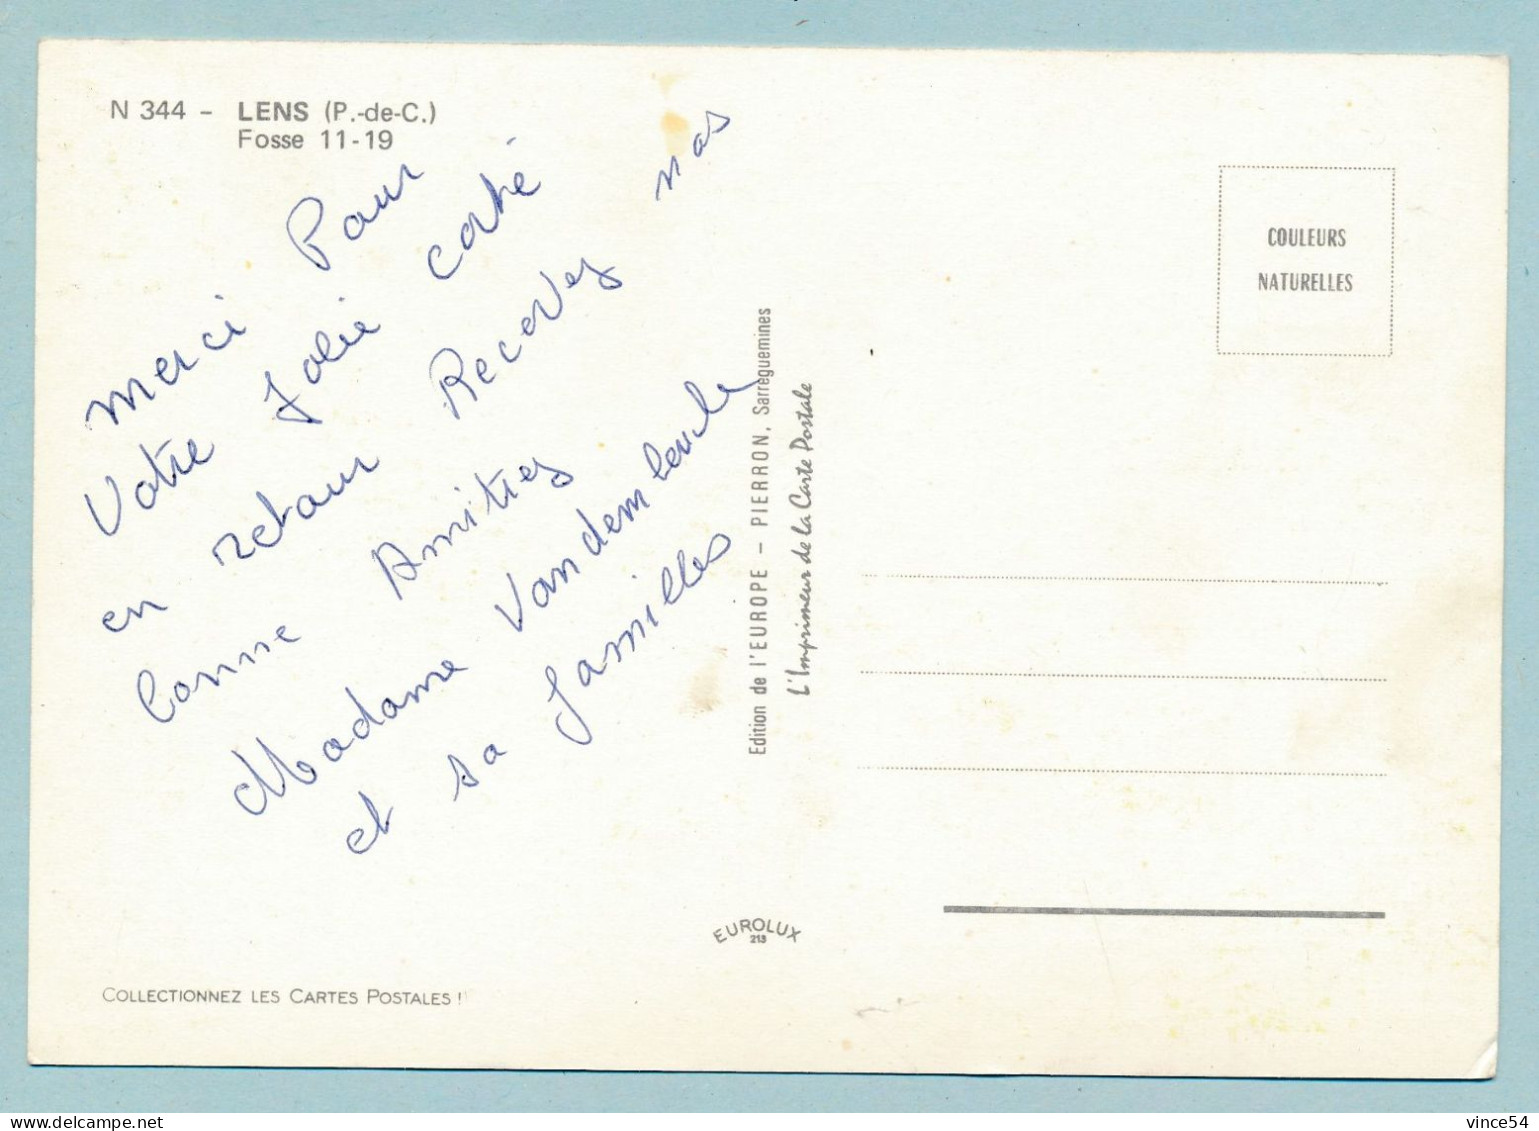 N 344 - LENS (P.-de-C.)
Fosse 11-19
merci Pour
Votre Jolie carte
en retour Recevez nos
bonne Amitiés
Madame
et sa familles
Edition de l'EUROPE - PIERRON, Sarreguemines
L'Imprimeur de la Carte Postale
COULEURS
NATURELLES
EUROLUX
213
COLLECTIONNEZ LES CARTES POSTALES !
vince54